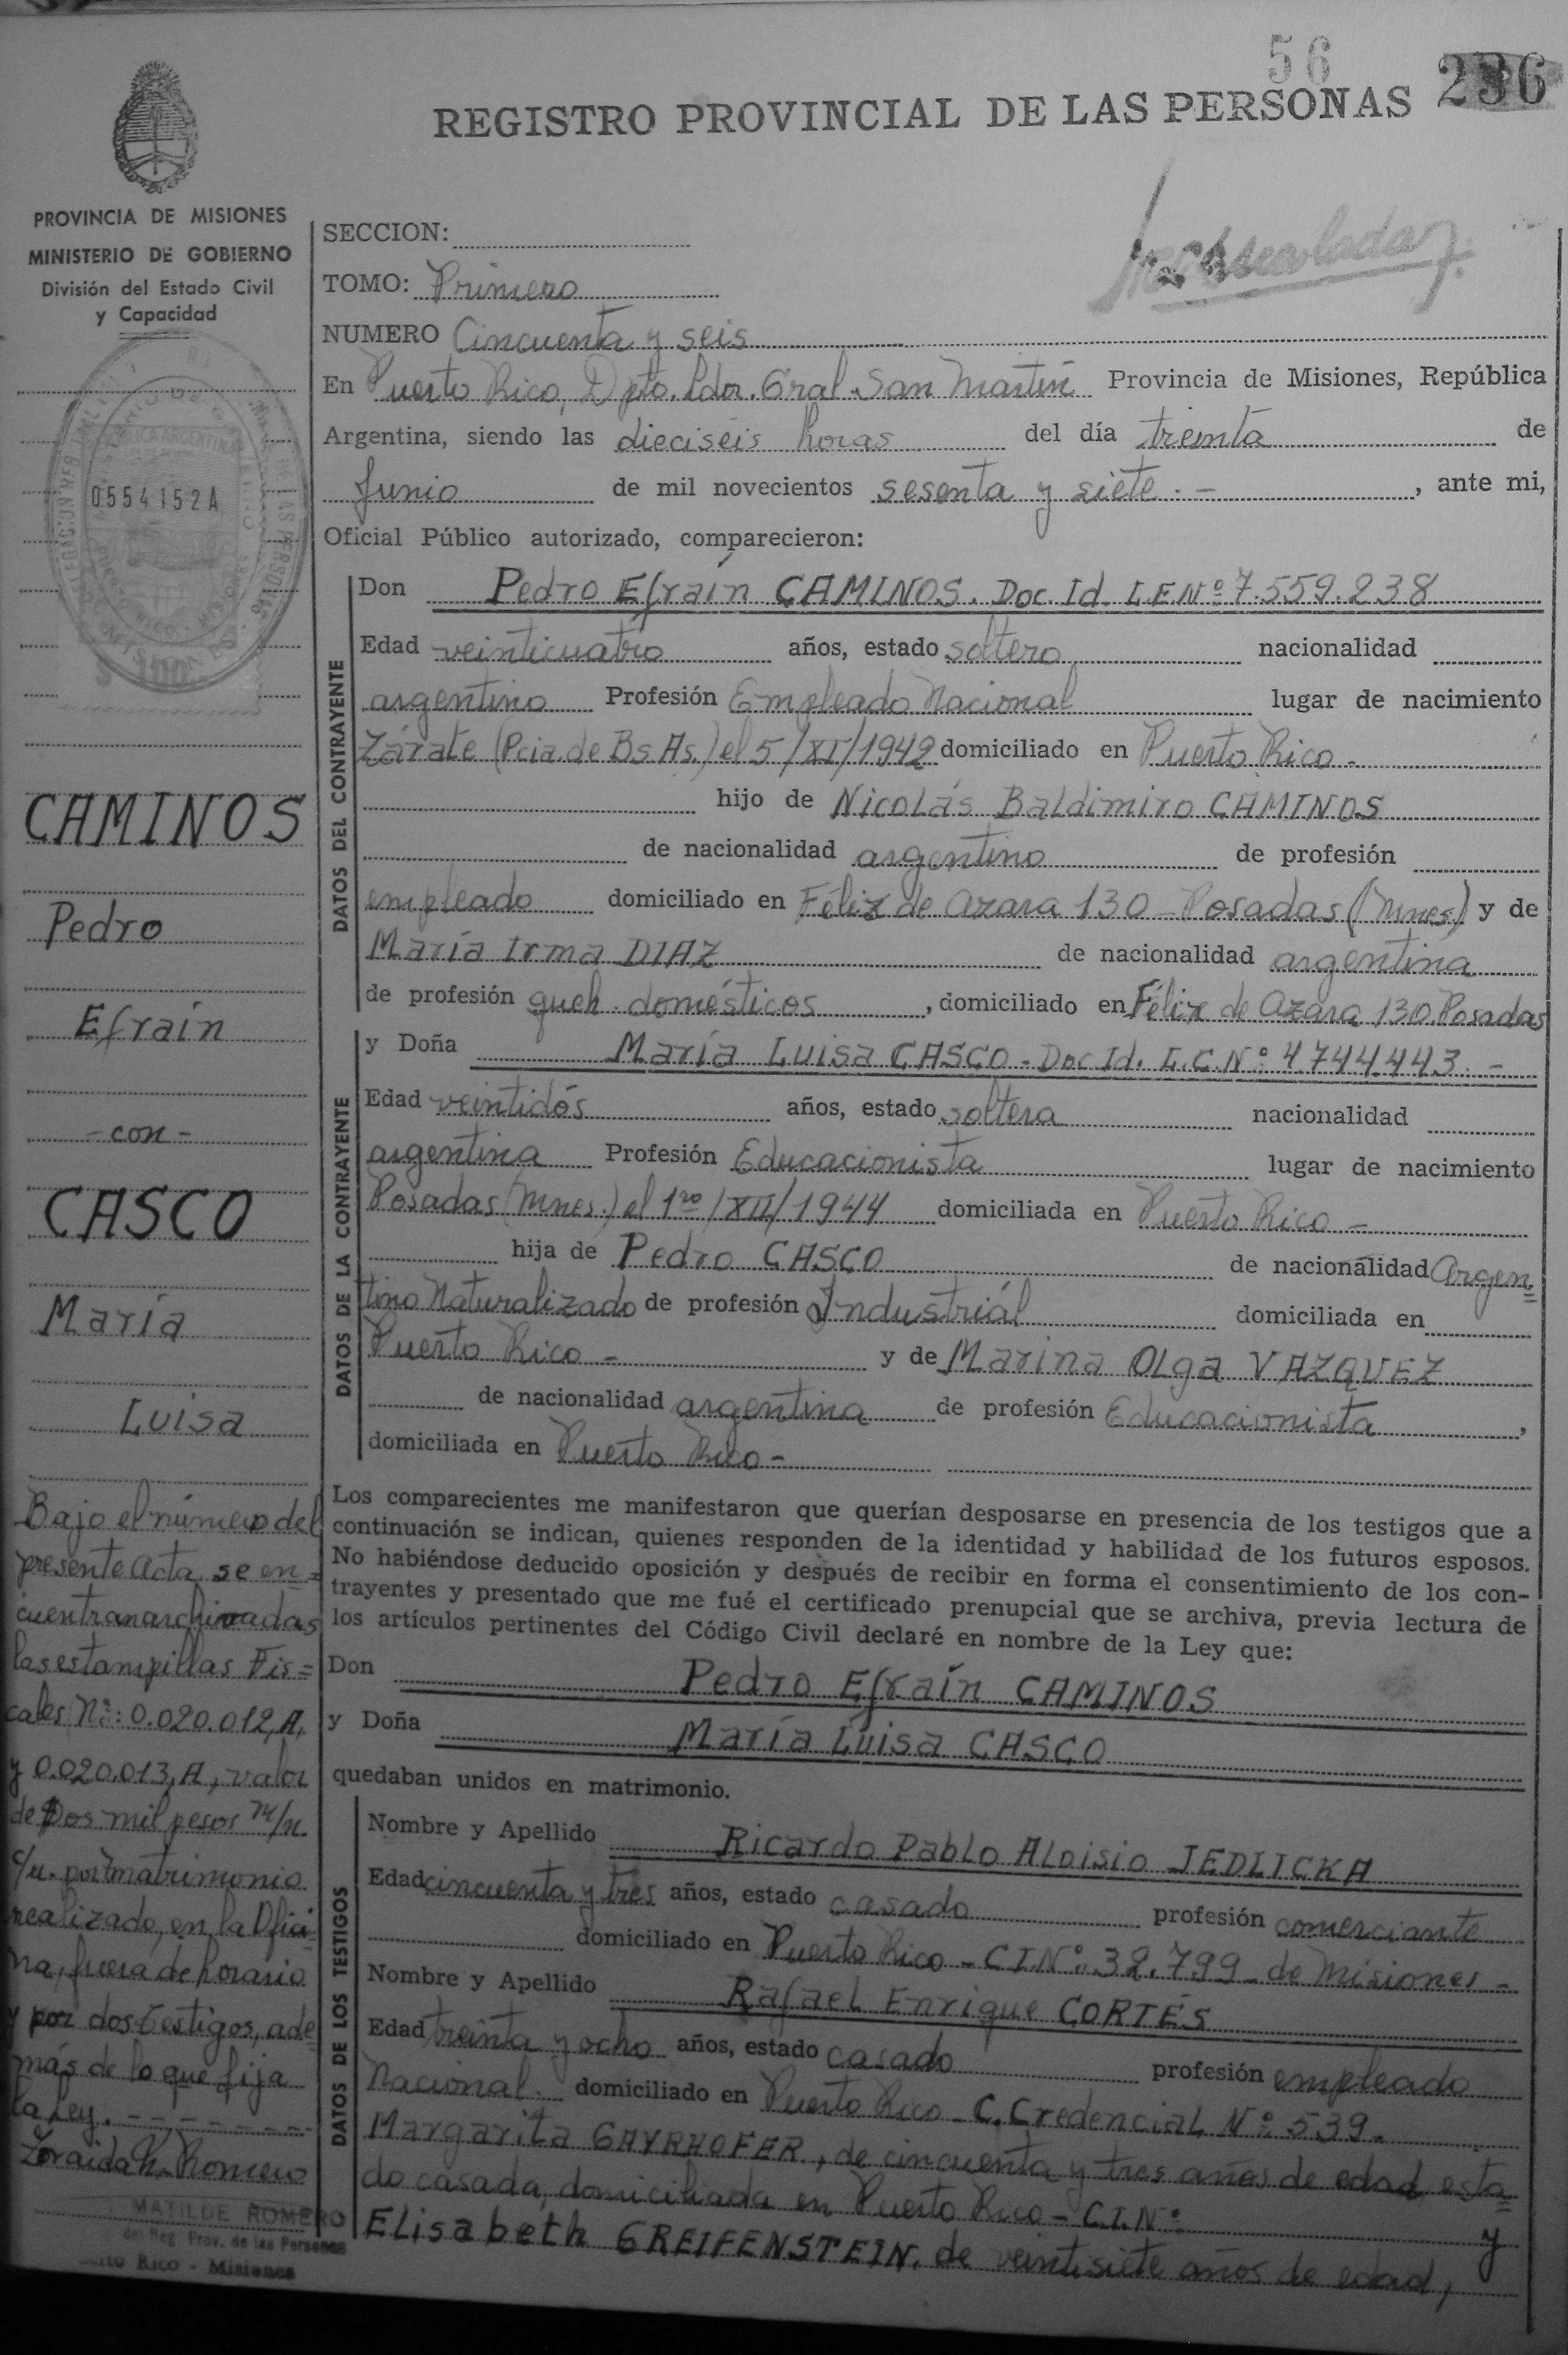 56
236
REGISTRO PROVINCIAL DE LAS PERSONAS
PROVINCIA DE MISIONES
MINISTERIO DE GOBIERNO
División del Estado Civil
y Capacidad
0554152A
CAMINOS
Pedro
Efraín
- con -
CASCO
María
Luisa
Bajo el número del
presente acta se en=
cuentran archivadas
las estampillas Fis=
cales Nº: 0.020.012,A,
y 0.020.013,A, valor
de Dos mil pesos m/n.
c/u. por matrimonio
realizado, en la Ofici
na, fuera de horario
y por dos testigos, ade
más de lo que fija
la Ley. - - - - - - -
Zoraida M. Romero
MATILDE ROMERO
del Reg. Prov. de las Personas
Rico - Misiones
SECCION:
TOMO: Primero
NUMERO Cincuenta y seis
En Puerto Rico, Dpto. Ldor. Gral. San Martín Provincia de Misiones, República
Argentina, siendo las dieciséis horas del día treinta de
Junio de mil novecientos sesenta y siete. - , ante mi,
Oficial Público autorizado, comparecieron:
DATOS DEL CONTRAYENTE
Don Pedro Efraín CAMINOS. Doc. Id. L.E.Nº 7.559.238
Edad veinticuatro años, estado soltero nacionalidad
argentino Profesión Empleado Nacional lugar de nacimiento
Zárate (Pcia. de Bs. As.) el 5/XI/1942 domiciliado en Puerto Rico -
hijo de Nicolás Baldimiro CAMINOS
de nacionalidad argentino de profesión
empleado domiciliado en Félix de Azara 130 - Posadas (Mnes) y de
María Irma DIAZ de nacionalidad argentina
de profesión queh. domésticos , domiciliado en Félix de Azara 130 Posadas
DATOS DE LA CONTRAYENTE
y Doña María Luisa CASCO - Doc Id. L.C.Nº: 4744443. -
Edad veintidós años, estado soltera nacionalidad
argentina Profesión Educacionista lugar de nacimiento
Posadas (Mnes.) el 1ro/XII/1944 domiciliada en Puerto Rico -
hija de Pedro CASCO de nacionalidad Argen=
tino Naturalizado de profesión Industriál domiciliada en
Puerto Rico - y de Marina Olga VAZQUEZ
de nacionalidad argentina de profesión Educacionista ,
domiciliada en Puerto Rico -
Los comparecientes me manifestaron que querían desposarse en presencia de los testigos que a
continuación se indican, quienes responden de la identidad y habilidad de los futuros esposos.
No habiéndose deducido oposición y después de recibir en forma el consentimiento de los con-
trayentes y presentado que me fué el certificado prenupcial que se archiva, previa lectura de
los artículos pertinentes del Código Civil declaré en nombre de la Ley que:
Don Pedro Efraín CAMINOS
y Doña María Luisa CASCO
quedaban unidos en matrimonio.
DATOS DE LOS TESTIGOS
Nombre y Apellido Ricardo Pablo Aloisio JEDLICKA
Edad cincuenta y tres años, estado casado profesión comerciante
domiciliado en Puerto Rico - C.I.Nº: 32.799 - de Misiones -
Nombre y Apellido Rafael Enrique CORTÉS
Edad treinta y ocho años, estado casado profesión empleado
Nacional. domiciliado en Puerto Rico - C. Credencial Nº: 539.
Margarita GAYRHOFER, de cincuenta y tres años de edad, esta=
do casada, domiciliada en Puerto Rico - C.I.Nº: y
Elisabeth GREIFENSTEIN, de veintisiete años de edad,